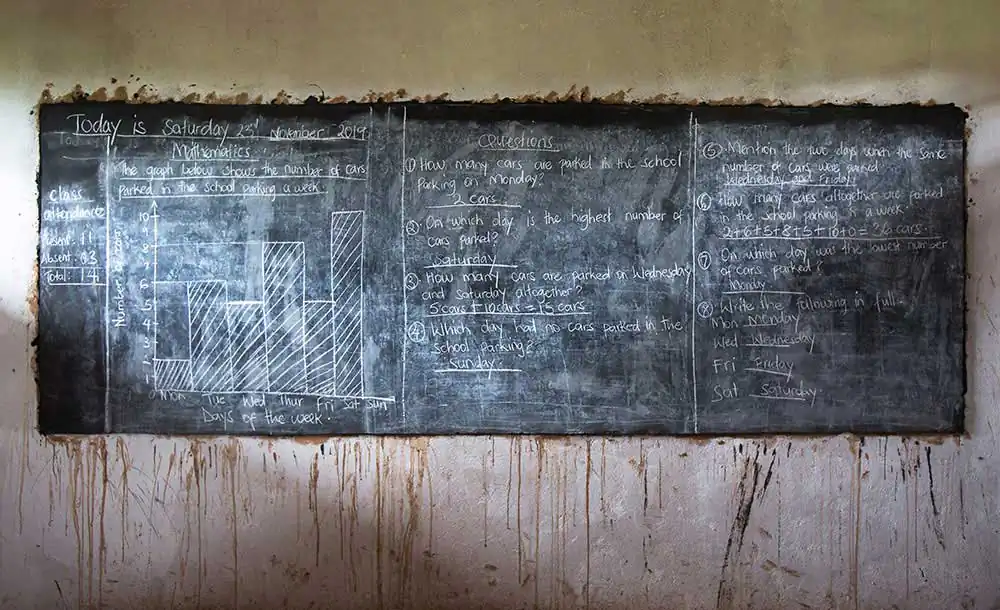 Today is Saturday 23rd November 2019
Class
attendance
Present: 11
Absent: 03
Total: 14
Mathematics.
The graph below shows the number of cars
parked in the school parking a week.
Number of cars
10
9
8
7
6
5
4
3
2
1
0
Mon Tue Wed Thur Fri Sat Sun
Days of the week.
Questions
1 How many cars are parked in the school
parking on Monday?
2 cars
2 On which day is the highest number of
cars parked?
Saturday
3 How many cars are parked on Wednesday
and Saturday altogether?
5 cars + 10 cars = 15 cars
4 Which day had no cars parked in the
school parking?
Sunday.
5 Mention the two days with the same
number of cars was parked
Wednesday and Friday
6 How many cars altogether are parked
in the school parking in a week.
2+6+5+8+5+10+0 = 36 cars.
7 On which day was the lowest number
of cars parked?
Monday
8 Write the following in full.
Mon Monday
Wed Wednesday
Fri Friday
Sat Saturday